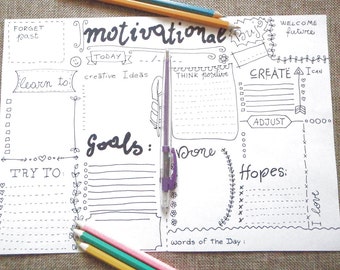 FORGET
past
motivational
You
WELCOME
future
TODAY
learn to:
creative Ideas
THINK positive
CREATE
I can
Goals:
Done
ADJUST
TRY TO:
Hopes:
I love
words of the Day: